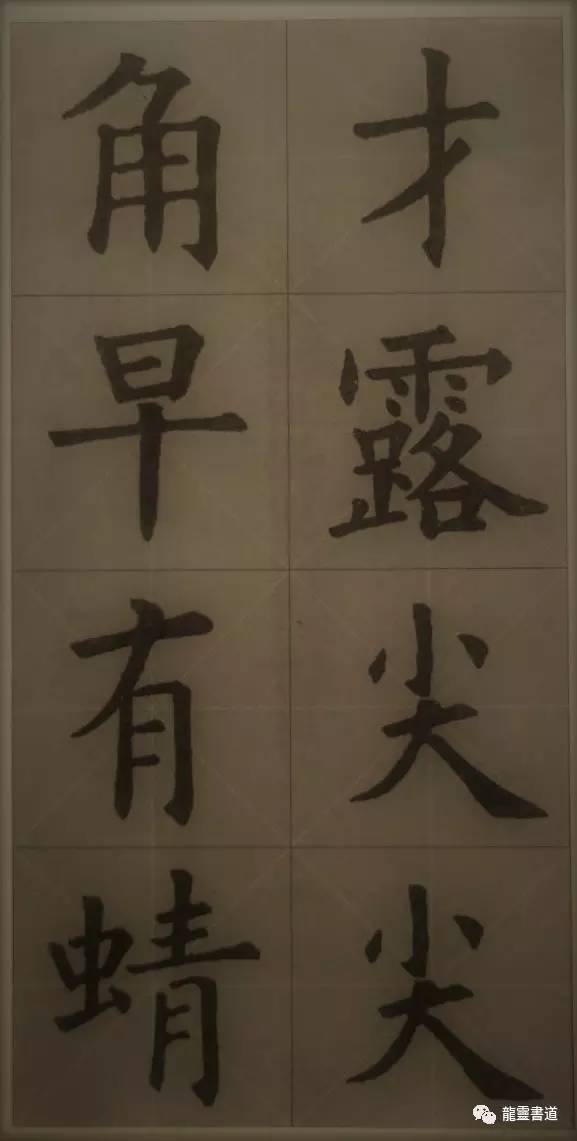 才露尖尖
角早有蜻
龍靈書道